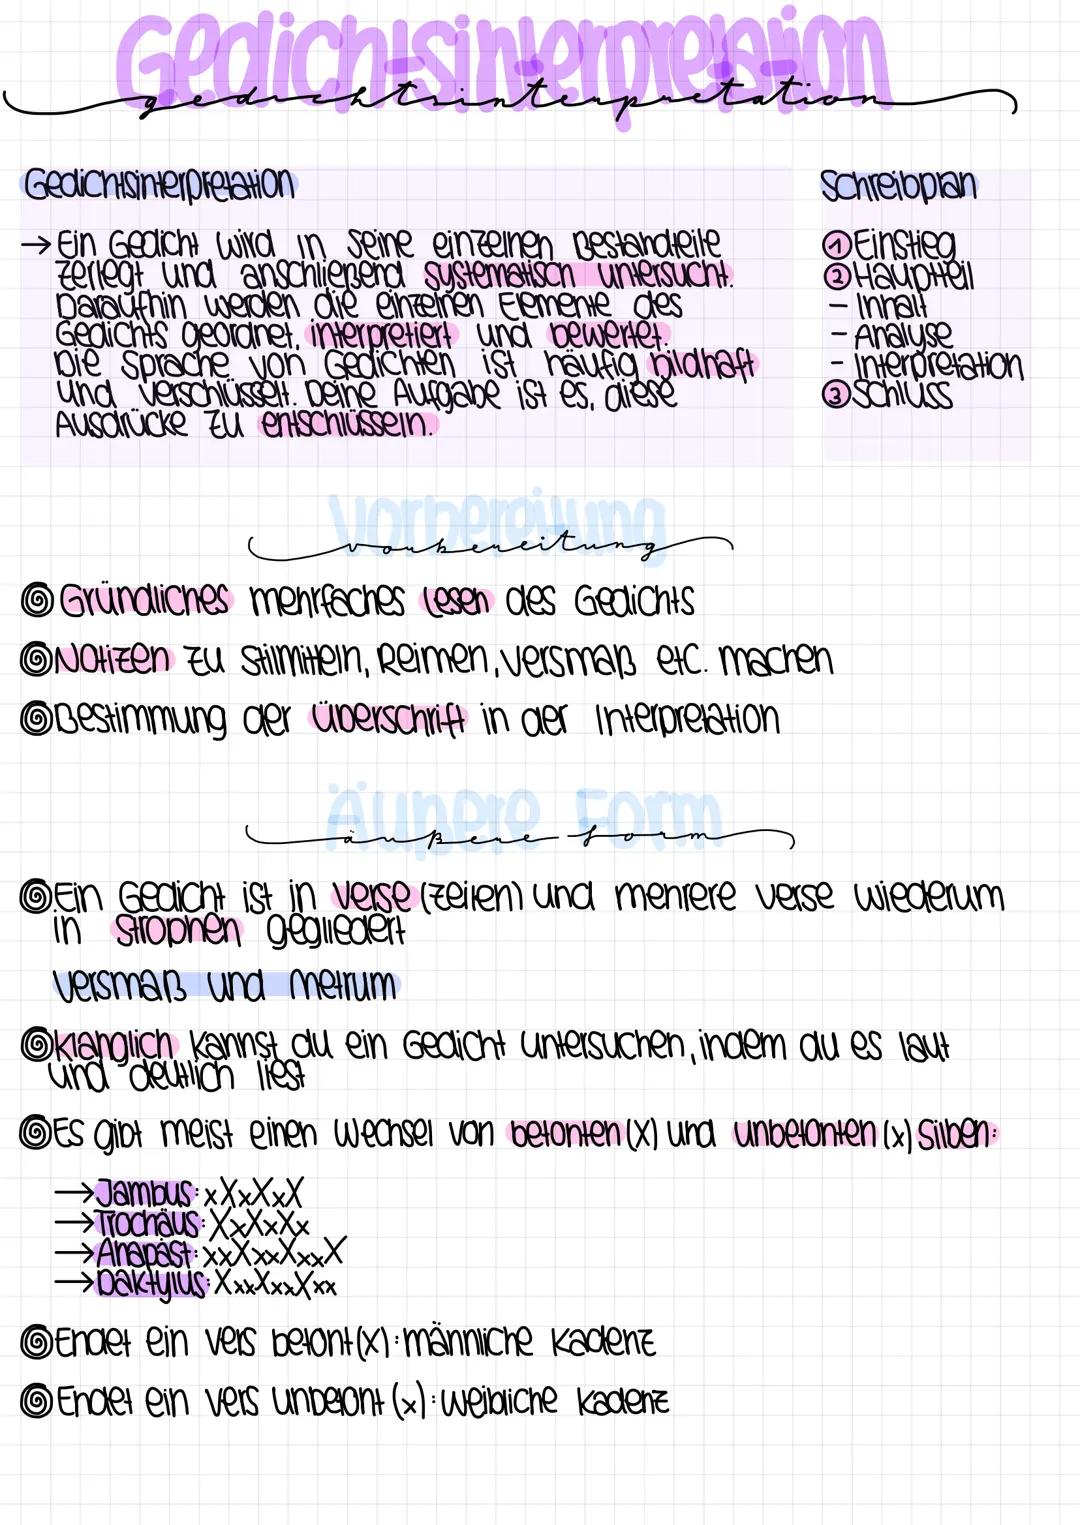 Gedichtsinterpretation
gedichtsinterpretation
Gedichtsinterpretation
→ Ein Gedicht wird in seine einzelnen Bestandteile
zerlegt und anschließend systematisch untersucht.
Daraufhin werden die einzelnen Elemente des
Gedichts geordnet, interpretiert und bewertet.
Die Sprache von Gedichten ist häufig bildhaft
und verschlüsselt. Deine Aufgabe ist es, diese
Ausdrücke zu entschlüsseln.
Schreibplan
① Einstieg
② Hauptteil
- Inhalt
- Analyse
- Interpretation
③ Schluss
Vorbereitung
vorbereitung
Gründliches mehrfaches Lesen des Gedichts
Notizen zu Stilmitteln, Reimen, Versmaß etc. machen
Bestimmung der Überschrift in der Interpretation
Äußere Form
äußere form
Ein Gedicht ist in Verse (Zeilen) und mehrere Verse wiederum
in Strophen gegliedert
Versmaß und Metrum
Klanglich kannst du ein Gedicht untersuchen, indem du es laut
und deutlich liest
Es gibt meist einen Wechsel von betonten (X) und unbetonten (x) Silben:
→ Jambus: xXxXxX
→ Trochäus: XxXxXx
→ Anapäst: xxXxxXxxX
→ Daktylus: XxxXxxXxx
Endet ein Vers betont (X): männliche Kadenz
Endet ein Vers unbetont (x): weibliche Kadenz